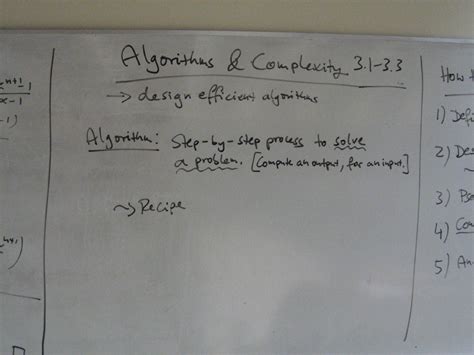 x^{n+1} - 1
x - 1
- 1)
n+1
Algorithms & Complexity 3.1-3.3
~> design efficient algorithms
Algorithm: Step-by-step process to solve
a problem. [Compute an output, for an input.]
~> Recipe
How t
1) Defi
2) Des
3) Pse
4) Co
5) An